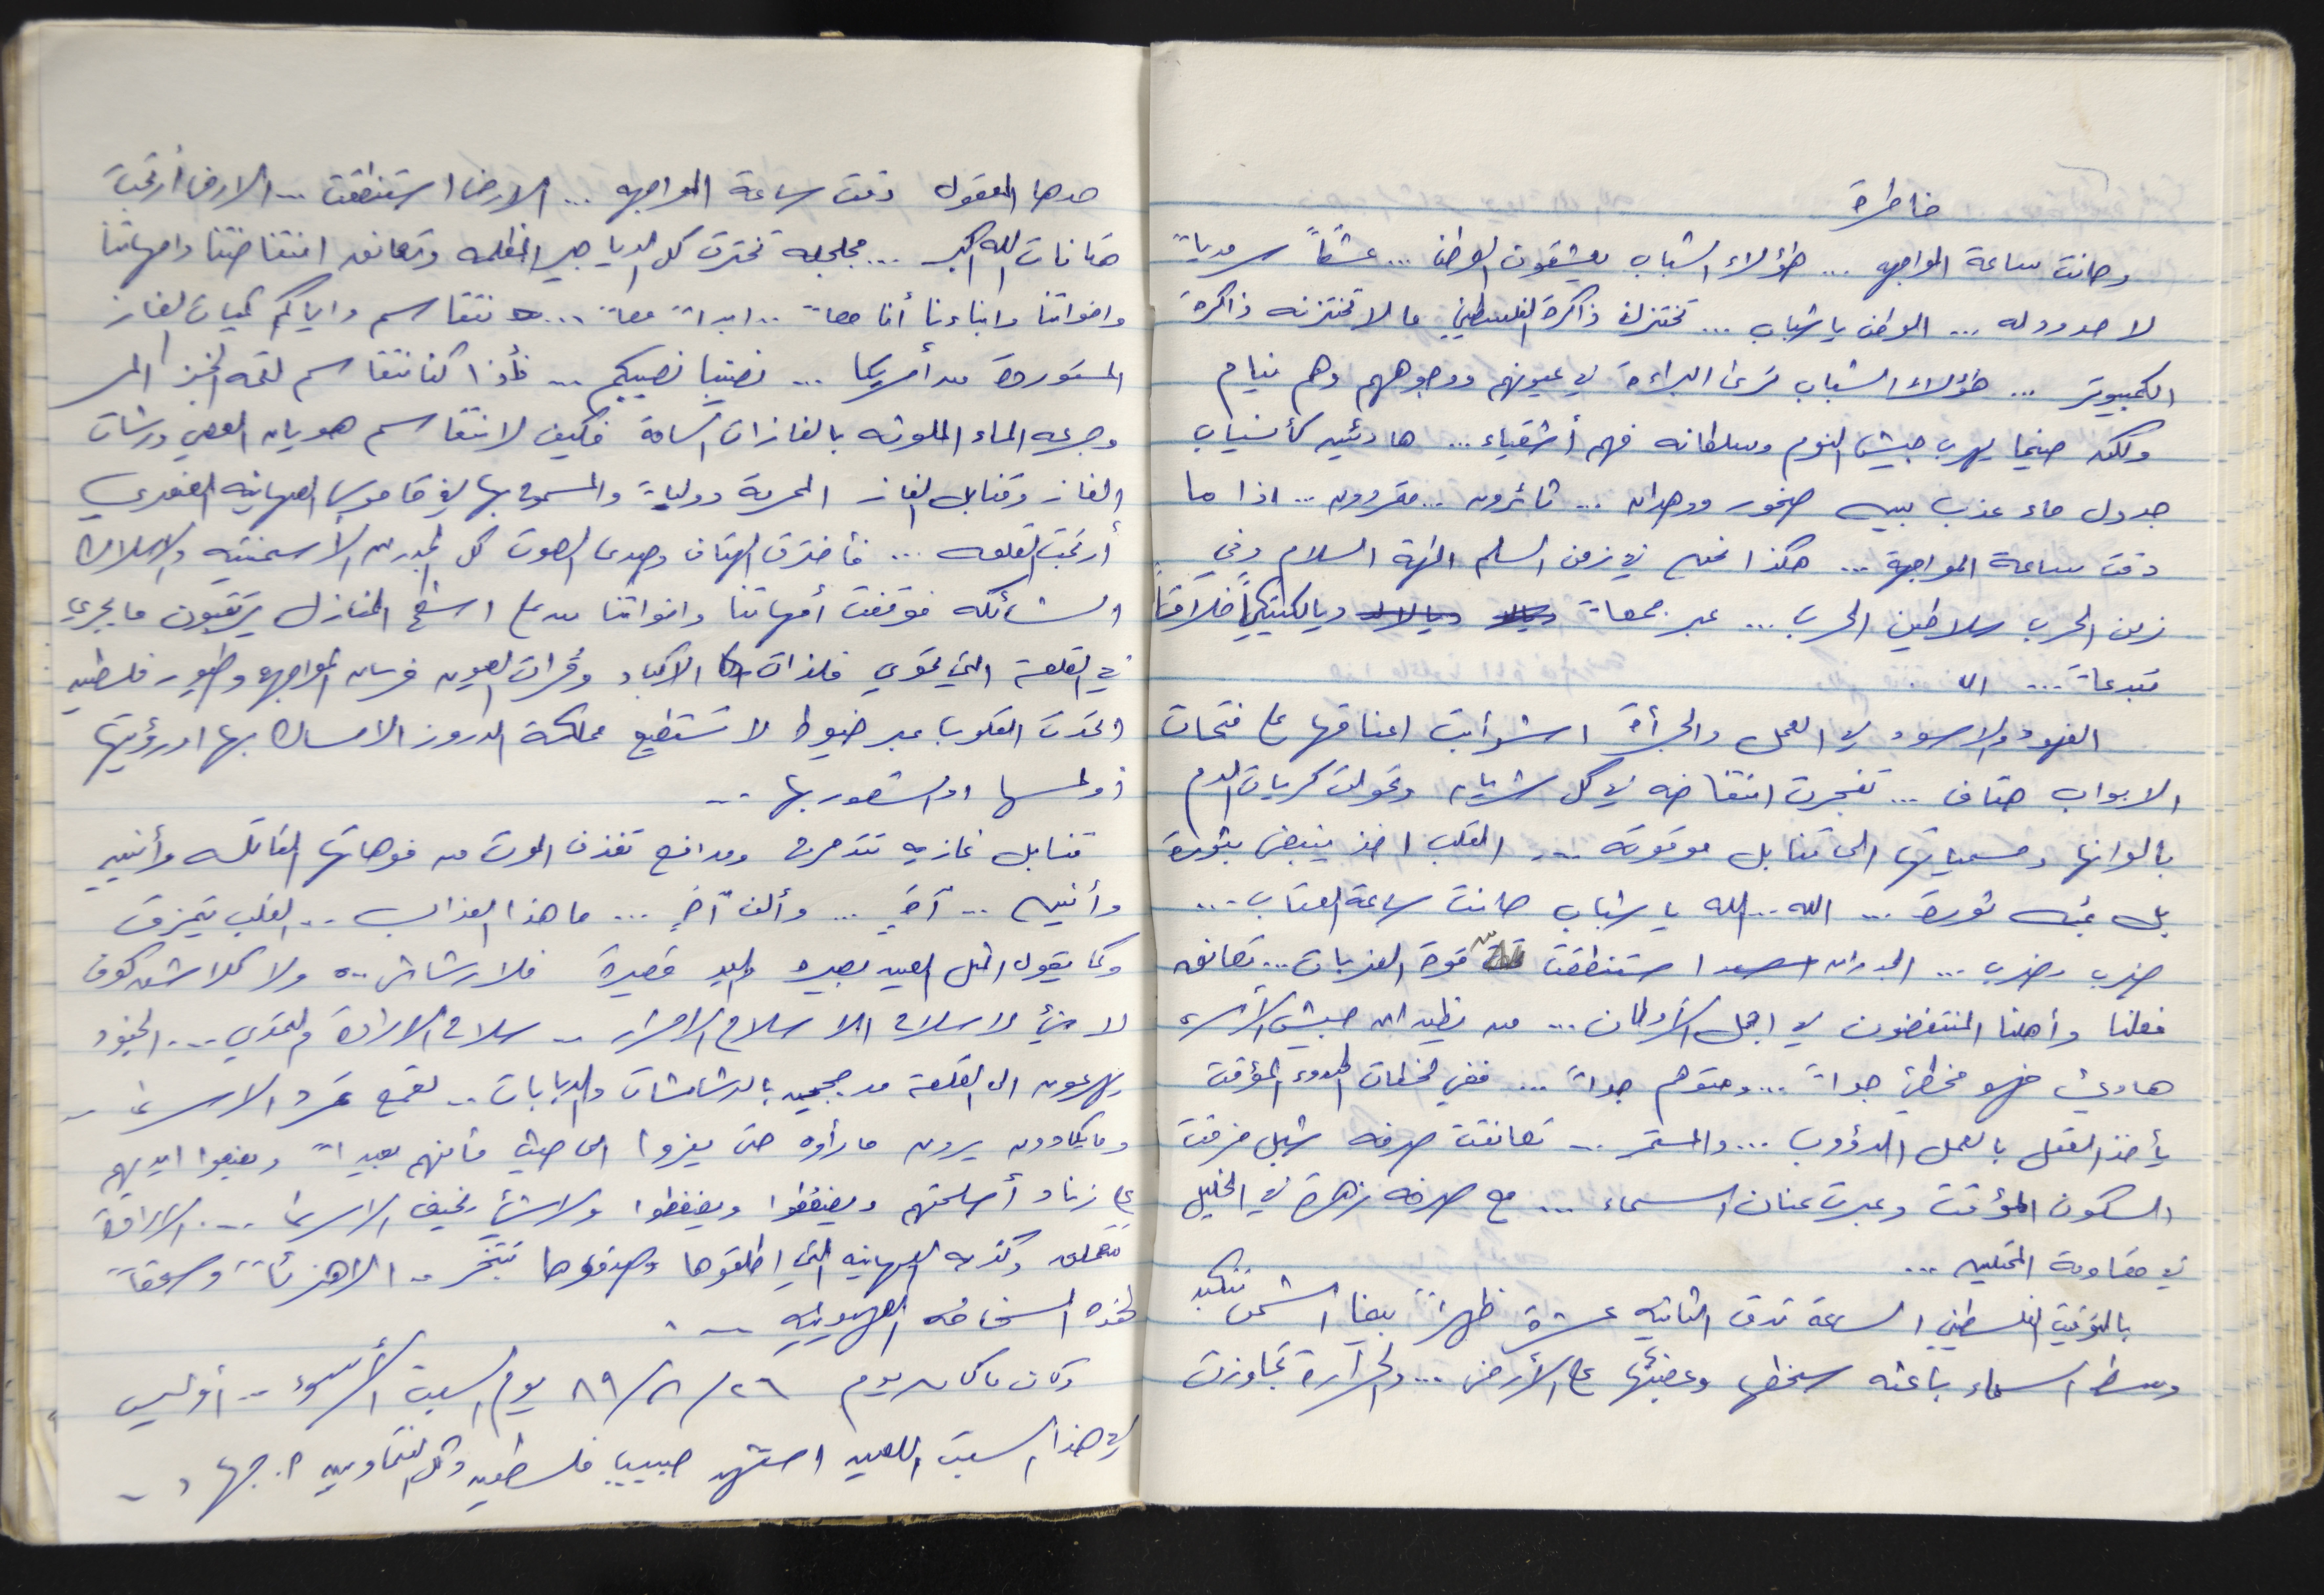 خاطرة
وحانت ساعة المواجهه ... هؤلاء الشباب يعشقون الوطن ... عشقاً سرمدياً
لا حدود له ... الوطن يا شباب ... تختزن ذاكرة الفلسطيني ما لا تختزنه ذاكرة
الكمبيوتر ... هؤلاء الشباب ترى البراءة في عيونهم ووجوههم وهم نيام
ولكن حينما يهرب جيش النوم وسلطانه فهم أشقياء ... هادئين كأنسياب
جدول ماء عذب بين صخور ووديان ... ثائرون ... متمردون ... اذا ما
دقت ساعة المواجهة ... هكذا نحن في زمن السلم الهة السلام وفي
زمن الحرب سلاطين الحرب ... عبر جمعاً ديالكتيكياً خلاقاً
مبدعاً ...
الفهود والاسود في العمل والجرأة اشرأبت اعناقها على فتحات
الابواب هتاف ... تفجرت انتفاضه في كل شريان وتحولت كريات الدم
بالوانها ومسمياتها الى قنابل موقوته ... القلب اخذ ينبض بثورة
بل ثورة ... الله .. الله يا شباب حانت ساعة العتاب ...
ضرب وضرب ... الجدران استنطقت قوة الضربات ... تعانق
فعلنا وأهلنا المنتفضون في اجمل الأوطان ... من يظن ان جيش الأسرى
هادئ فهو مخطئ جداً ... ومتوهم جداً ... ففي لحظات الهدوء المؤقت
يأخذ العقل بالعمل الدؤوب ... والمستمر ... تعانقت صرخه شبل مزقت
السكون المؤقت وعبرت عنان السماء ... مع صرخه زهرة في الخليل
في مقاومة المحتلين ...
بالتوقيت الفلسطيني الساعة تدق الثانيه عشرة ظهراً بينما الشمس تتكبد
وسط السماء باعثه سخطها وغضبها على الأرض ... والحرارة تجاوزت
حدها المعقول دقت ساعة المواجهه ... الارض استنطقت ... الارض أرتجت
هتافات الله اكبر ... مجلجله تخترق كل الدياجير المظلمه وتعانق انتفاضتنا وامهاتنا
واخواتنا وابناءنا أنا معاً .. ابداً معاً ... نتقاسم واياكم كميات الغاز
المستوردة من أمريكا ... نصيبنا نصيبكم ... فأذا كنا نتقاسم لقمة الخبز المر
وجرعه الماء الملوثه بالغازات السامة فكيف لا نتقاسم هويان العصي ورشات
الغاز وقنابل الغاز المحرمة دولياً والمسموح بها في قاموس الصهاينه العنصري
أرتجت القلعه ... فأخترق الهتاف وصدى الصوت كل الجدران الأسمنتيه والاسلاك
الشائكه فوقفت أمهاتنا واخواتنا من على اسطح المنازل يرتقبون ما يجري
في القلعة التي تحوي فلذات الاكباد وقرات العيون فرسان المواجهه وطيور فلسطين
اتحدت القلوب عبر خيوط لا تستطيع مملكة الدروز الامساك بها او رؤيتها
أو لمسها او الشعور بها ...
قنابل غازيه تتدحرج ومدافع تقذف الموت من فوهاتها القاتله وأنين
وأنين ... آخٍ ... وألف آخٍ ... ما هذا العذاب ... القلب يتمزق
وكما يقول المثل العين بصيره واليد قصيرة فلا رشاش .. ولا كلاشنكوف
لا شيء لا سلاح الا سلاح الاصرار .. سلاح الارادة والتحدي ... الجنود
يهرعون الى القلعة مدججين بالرشاشات والدبابات .. لقمع تمرد الاسرى ..
وما يكادون يرون ما رأوه حتى يفروا الى حيث مأمنهم بعيداً ويضعوا ايديهم
على زناد أسلحتهم ويضغطوا ويضغطوا ولا شيء يخيف الاسرى ... الارادة
تتعملق وكذبه الصهاينه التي اطلقوها وصدقوها تتبخر .. الا هزئاً وسحقاً
لهذه السخافه الصهيونيه ...
وكان ما كان يوم ٢٦/٨/٨٩ يوم السبت الأسود ... أو ليس
في هذا السبت اللعين استشهد حبيبا فلسطين وكل المقاومين